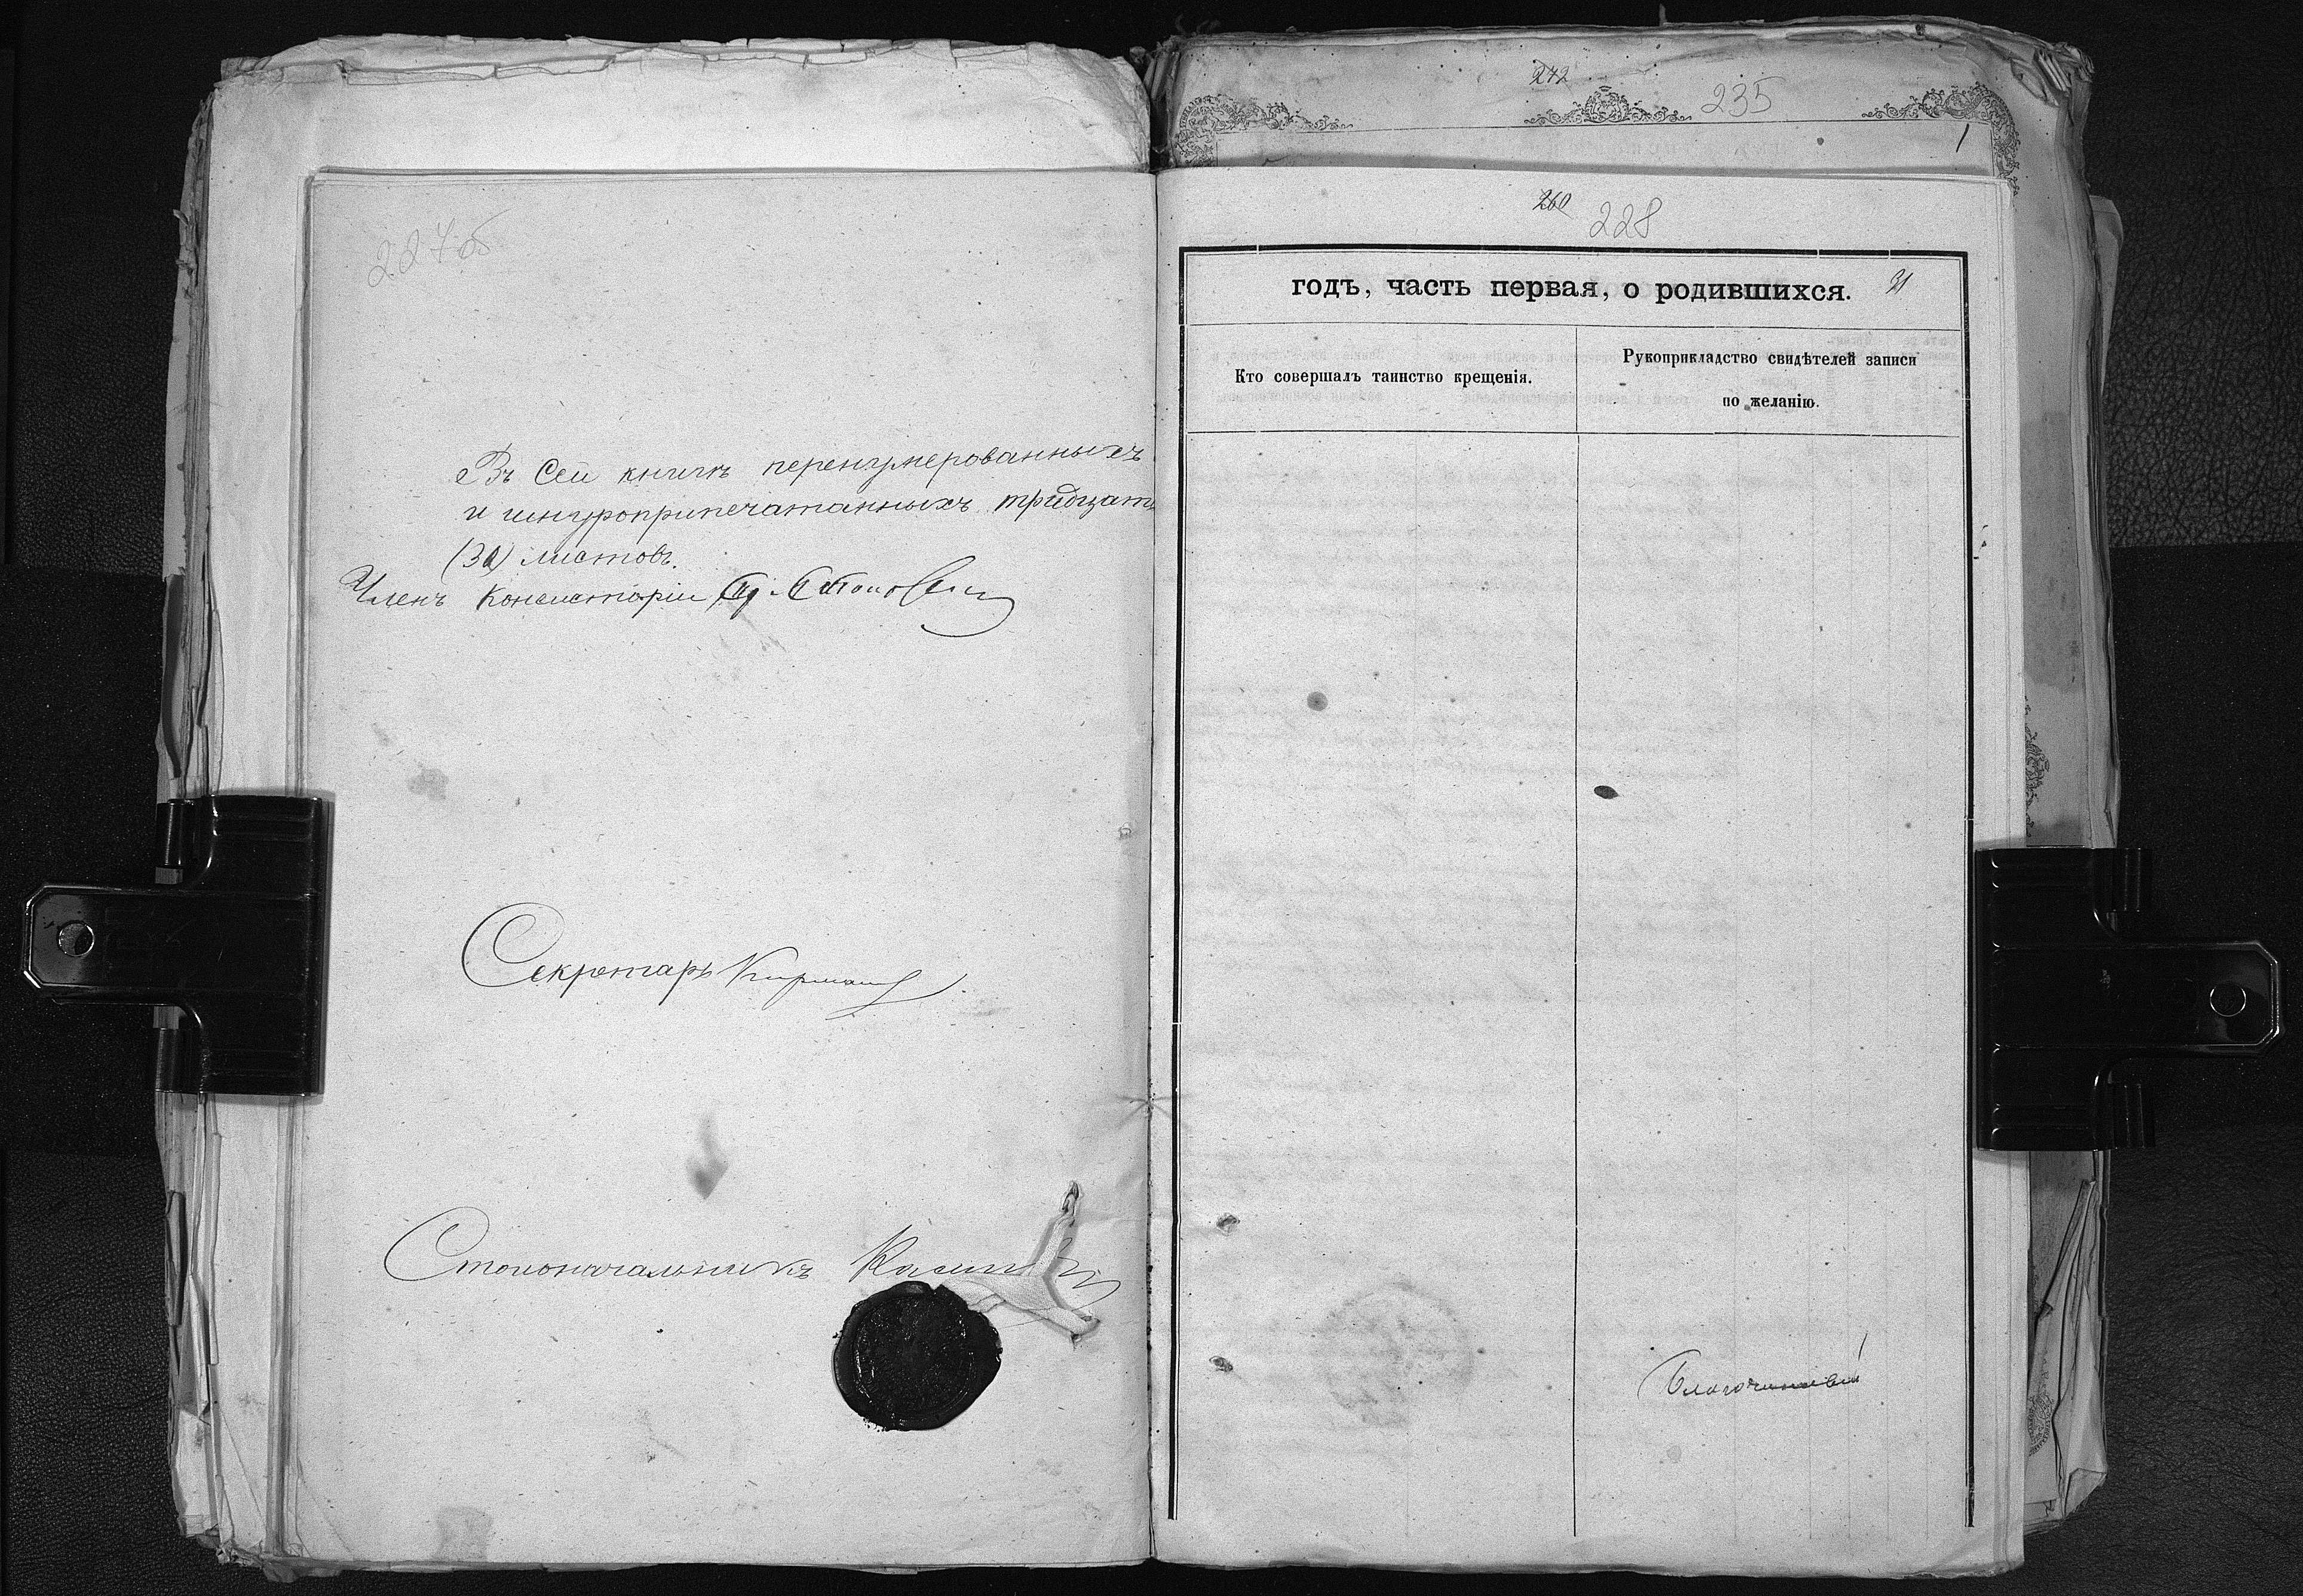 227об
Въ сей книгѣ перенумерованныхъ
и шнуроприпечатанныхъ тридцать
(30) листовъ.
Членъ Консисторіи
Секретарь
Столоначальникъ
242
235
1
260
228
годъ, часть первая, о родившихся. 31
Кто совершалъ таинство крещенія.
Рукоприкладство свидѣтелей записи
по желанію.
Благочинный